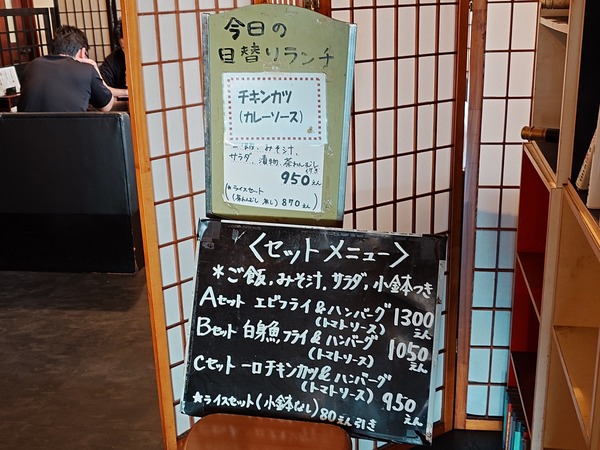 今日の
日替りランチ
チキンカツ
(カレーソース)
ご飯、みそ汁、
サラダ、漬物、茶わんむし
付き
950えん
(★ライスセット
(茶わんむし無し) 870えん)
〈セットメニュー〉
*ご飯、みそ汁、サラダ、小鉢つき
Aセット エビフライ&ハンバーグ 1300えん
(トマトソース)
Bセット 白身魚フライ&ハンバーグ 1050えん
(トマトソース)
Cセット 一口チキンカツ&ハンバーグ
(トマトソース) 950えん
★ライスセット(小鉢なし) 80えん引き